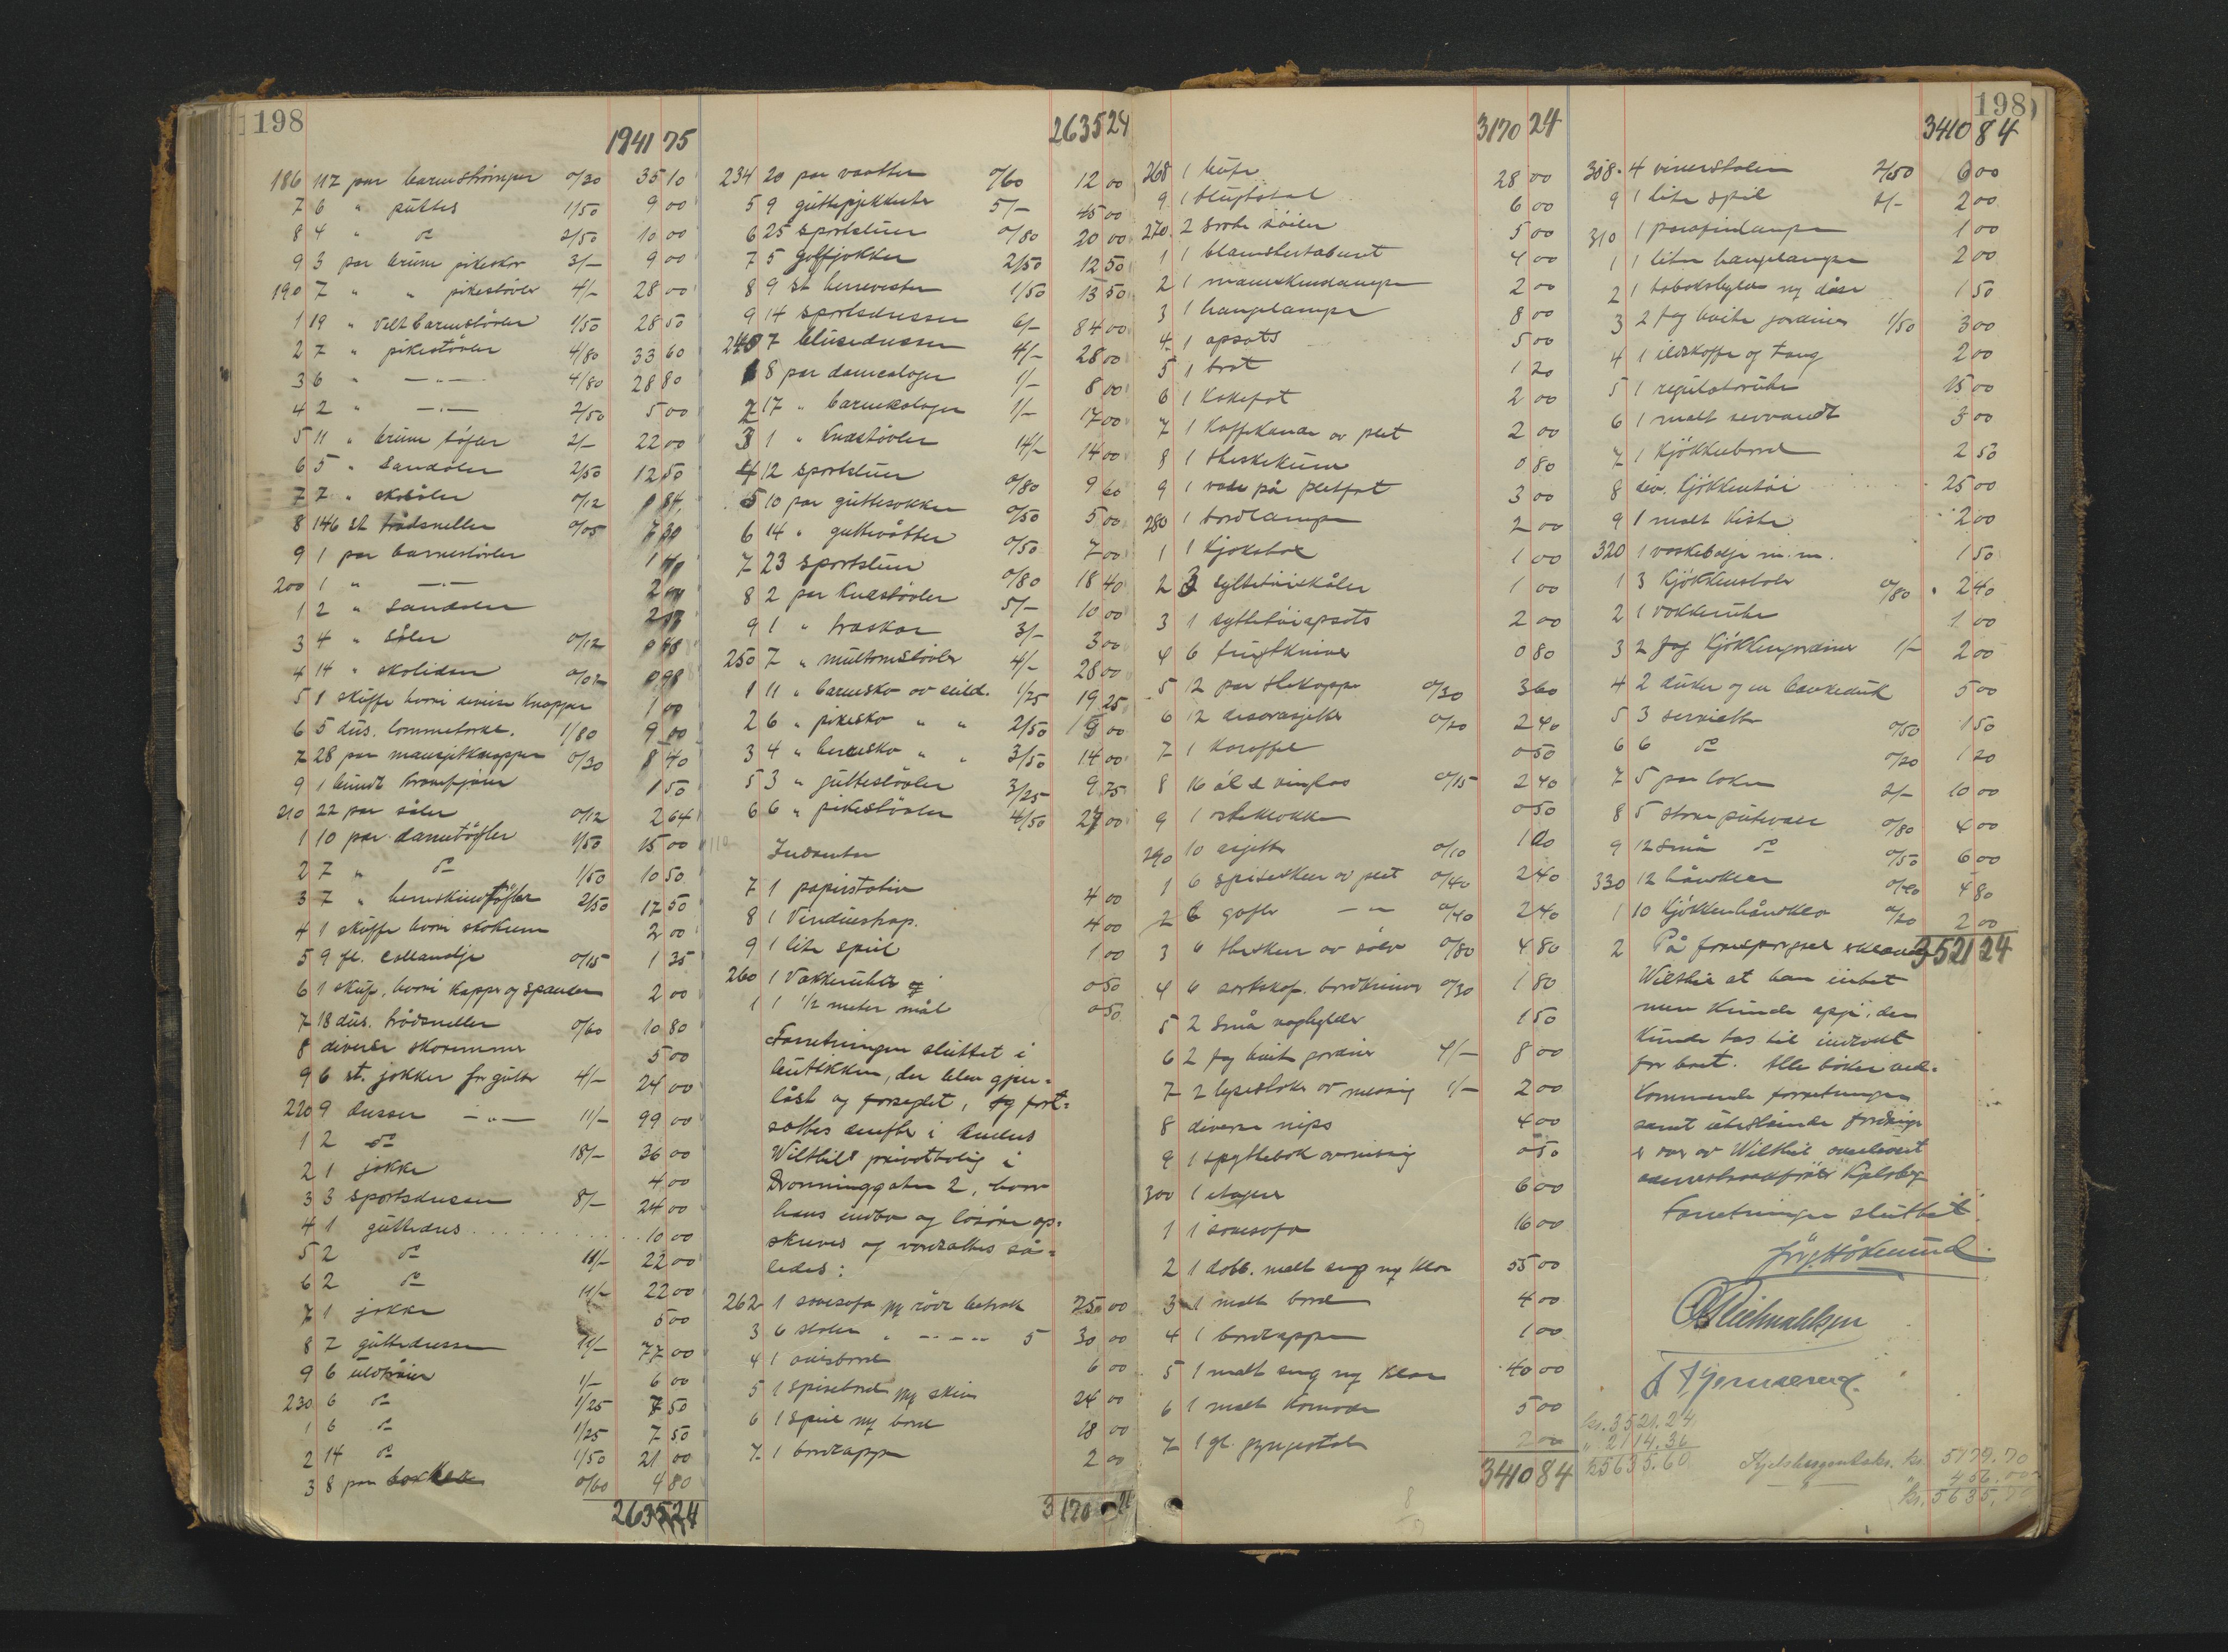 198
1941 75
186 117 par barneströmper 0/30 35 10
7 6 " puttes 1/50 9 00
8 4 " do 2/50 10 00
9 3 par brune pikesko 3/- 9 00
190 7 " " pikestövler 4/- 28 00
1 19 " barnestövler 1/50 28 50
2 7 " pikestövler 4/80 33 60
3 6 " -"- 4/80 28 80
4 2 " -"- 2/50 5 00
5 11 " brune töfler 2/- 22 00
6 5 " Sandaler 2/50 12 50
7 7 " skosåler 0/12 0 84
8 146 st trådsneller 0/05 7 30
9 1 par barnestövler
200 1 " -"- 2 00
1 2 " Sandaler
3 4 " såler 0/12 0 48
4 14 " 0/07 0 98
5 1 skuffe hvori diverse knapper 1 00
6 5 dus. lommetörkl. 1/80 9 00
7 28 par mansjetknapper 0/30 8 40
9 1 bundt 1 50
210 22 par såler 0/12 2 64
1 10 par dametöfler 1/50 15 00
2 7 " do 1/50 10 50
3 7 " töfler 2/50 17 50
4 1 skuffe hvori 2 00
5 9 fl. 0/15 1 35
6 1 skuf. hvori kapper og spænder 2 00
7 18 dus. trådsneller 0/60 10 80
8 diverse 5 00
9 6 st. jakker for gutter 4/- 24 00
220 9 dresser -"- 11/- 99 00
1 2 do 18/- 36 00
2 1 jakke 4 00
3 3 sportsdresser 8/- 24 00
4 1 guttedres 10 00
5 2 do 11/- 22 00
6 2 do 11/- 22 00
7 1 jakke 5 00
8 7 guttedresser 11/- 77 00
9 6 uldtröier 1/- 6 00
230 6 do 1/25 7 50
1 6 do 1/25 7 50
2 14 do 1/50 21 00
3 8 par sokker 0/60 4 80
2635 24
2635 24
234 20 par vaatter 0/60 12 00
5 9 5/- 45 00
6 25 sportsluer 0/80 20 00
7 5 golfjakker 2/50 12 50
8 9 st herrevester 1/50 13 50
9 14 sportsdresser 6/- 84 00
240 7 blusedresser 4/- 28 00
1 8 par damekaloger 1/- 8 00
2 17 " barnekaloger 1/- 17 00
3 1 " knæstövler 14/- 14 00
4 12 sportsluer 0/80 9 60
5 10 par guttesokker 0/50 5 00
6 14 " guttevåtter 0/50 7 00
7 23 sportsluer 0/80 18 40
8 2 par knæstövler 5/- 10 00
9 1 " træskor 3/- 3 00
250 7 " 4/- 28 00
1 11 " barnesko av seild. 1/25 19 25
2 6 " pikesko " " 2/50 15 00
3 4 " herresko " " 3/50 14 00
5 3 " guttestövler 3/25 9 75
6 6 " pikestövler 4/50 27 00
Inventar
7 1 papirstativ 4 00
8 1 Vinduesskap. 4 00
9 1 lite speil 1 00
260 1 Vækkeruhr 0 50
1 1 1/2 meter mål 0 50
Forretningen sluttet i
butikken, der blev gjen-
låst og forseglet, og fort-
sattes derefter i
privatbolig i
Dronninggaten 2, hvor
hans indbo og lösöre op-
skreves og verdsattes så-
ledes:
262 1 sovesofa m/ rödt betræk 75 00
3 6 stoler " -"- 5 30 00
4 1 avisbord 6 00
5 1 spisebord m/ skiv 24 00
6 1 Speil m/ bord 18 00
7 1 bordteppe 2 00
3170 24
3170 24
268 1 28 00
9 1 6 00
270 2 söiler 5 00
1 1 blomstertaburet 4 00
2 1 2 00
3 1 hængelampe 8 00
4 1 opsats 5 00
5 1 brat 1 20
6 1 kakefat 2 00
7 1 kaffekande av plet 2 00
8 1 theskekurv 0 80
9 1 vase på pletfat 3 00
280 1 bordlampe 2 00
1 1 kjeksbok 1 00
2 3 syltetöiskåler 1 00
3 1 syltetöiopsats 2 00
4 6 frugtkniver 0 80
5 12 par thekopper 0/30 3 60
6 12 desertasjetter 0/20 2 40
7 1 karaffel 0 50
8 16 öl & vinglas 0/15 2 40
9 1 osteklokke 0 50
290 10 asjetter 0/10 1 00
1 6 spiseskeer av plet 0/40 2 40
2 6 gafler -"- 0/40 2 40
3 6 theskeer av sölv 0/80 4 80
4 6 bordkniver 0/30 1 80
5 2 små 1 50
6 2 fag hvite gardiner 4/- 8 00
7 2 lysestaker av messing 1/- 2 00
8 diverse nips 4 00
9 1 spyttebak av messing 0 50
300 1 etagere 6 00
1 1 sovesofa 16 00
2 1 dobb. malt seng m/ klær 55 00
3 1 malt bord 4 00
4 1 bordteppe 1 00
5 1 malt seng m/ klær 40 00
6 1 malt komode 5 00
7 1 gl. gyngestol 2 00
3410 84
198
3410 84
308 4 vinerstoler 2/50 6 00
9 1 lite speil 2/- 2 00
310 1 parafinlampe 1 00
1 1 liten hængelampe 2 00
2 1 tobakshylde m/ dåse 1 50
3 2 fag hvite gardiner 1/50 3 00
4 1 ildskuffe og tang 2 00
5 1 regulatoruhr 15 00
6 1 malt servandt 3 00
7 1 kjökkenbord 2 50
8 div. kjökkentöi 25 00
9 1 malt kiste 2 00
320 1 vaskebalje m.m. 1 50
1 3 kjökkenstoler 0/80 2 40
2 1 vækkeruhr 1 00
3 2 fag kjökkengardiner 1/- 2 00
4 2 duker og en kaffeduk 5 00
5 3 servietter 0/50 1 50
6 6 do 0/20 1 20
7 5 par laken 2/- 10 00
8 5 store putevaar 0/80 4 00
9 12 små do 0/50 6 00
330 12 håndklær 0/40 4 80
1 10 kjökkenhåndklær 0/20 2 00
3521 24
2 På forespörgsel erklærte
at han intet
mere kunde opgi, der
kunde tas til indtekt
for boet. Alle böker ved-
kommende forretningen
samt utestående fordringer
er av overlevert

Forretningen sluttet.
kr. 3521.24
" 2114.36
kr 5635.60
kr. 5179.70
" 456.00
kr. 5635.